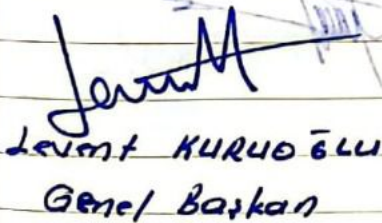 Levent KURUOĞLU
Genel Başkan